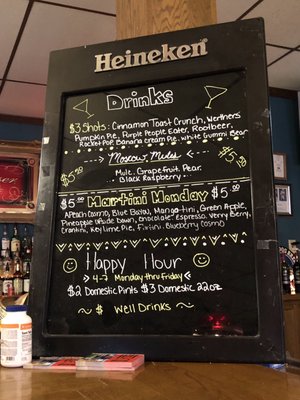 Heineken
Drinks
$3 Shots: Cinnamon Toast Crunch, Werthers'
Pumpkin Pie, Purple People Eater, Rootbeer,
Rocket Pop, Banana Cream Pie, White Gummi Bear
Moscow Mules
$5.00 $5.00
Mule. Grapefruit. Pear.
Black Raspberry
$5.00 Martini Monday $5.00
Peach Cosmo, Blue Batou, Mangotini, Green Apple,
Pineapple Upside Down, Chocolate, Espresso, Very Berry,
Crantini, Key Lime Pie, Firtini, Blueberry Cosmo
Happy Hour
4-7 Monday thru Friday
$2 Domestic Pints $3 Domestic 22oz
$ Well Drinks